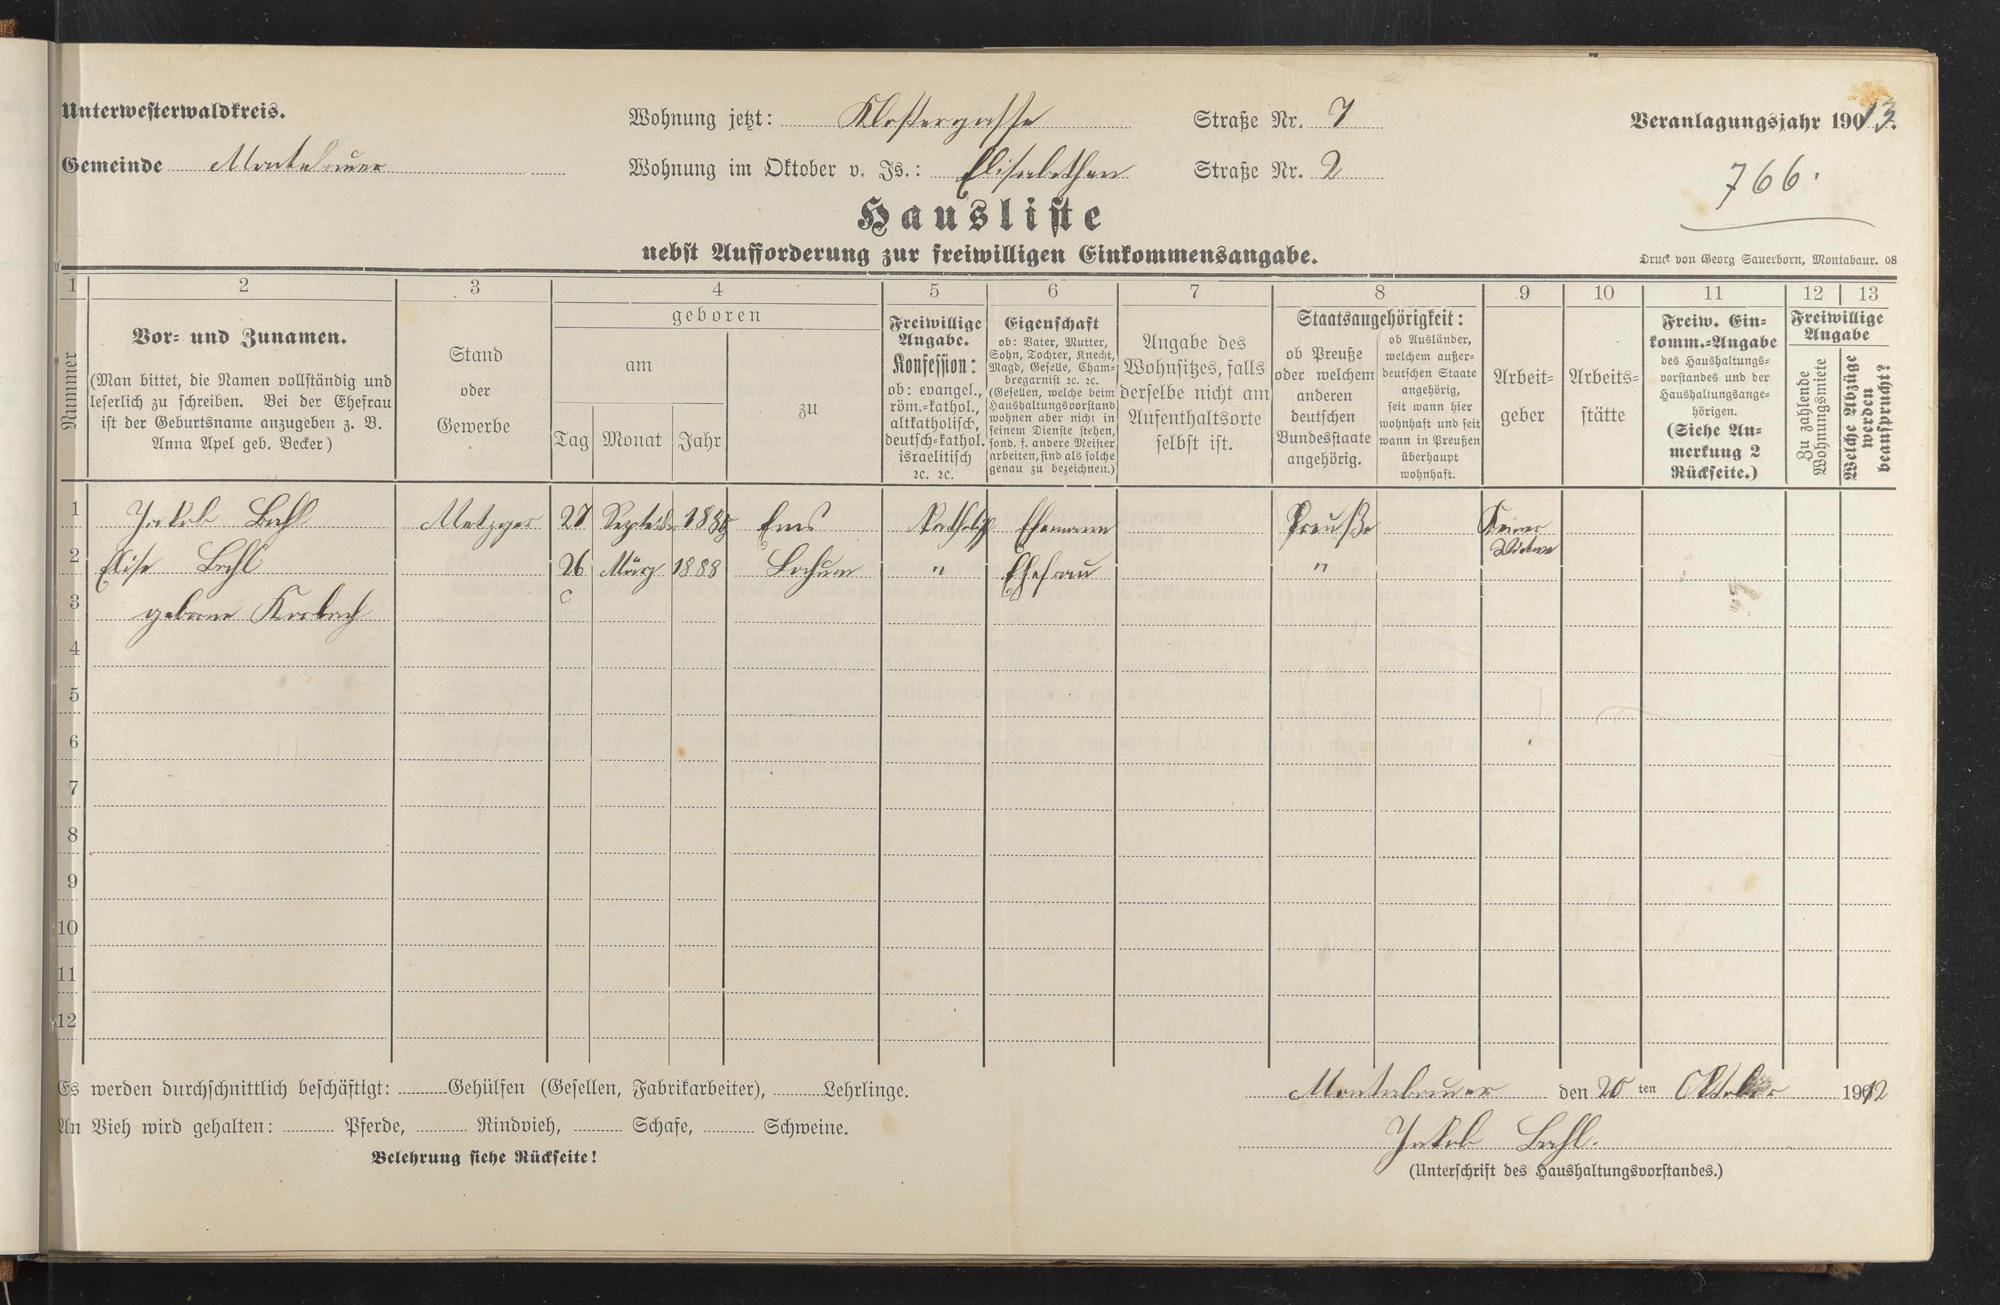 Unterwesterwaldkreis.
Wohnung jetzt: Klostergasse Straße Nr. 7
Veranlagungsjahr 1913.
Gemeinde Montabauer
Wohnung im Oktober v. Js.: Elisabethen Straße Nr. 2
766.
Hausliste
nebst Aufforderung zur freiwilligen Einkommensangabe.
Druck von Georg Sauerborn, Montabaur. 08
1 2 3 4 5 6 7 8 9 10 11 12 13
Nummer
Vor- und Zunamen.
(Man bittet, die Namen vollständig und
leserlich zu schreiben. Bei der Ehefrau
ist der Geburtsname anzugeben z. B.
Anna Apel geb. Becker)
Stand
oder
Gewerbe
geboren
am
Tag Monat Jahr
zu
Freiwillige
Angabe.
Konfession:
ob: evangel.,
röm.-kathol.,
altkatholisch,
deutsch-kathol.
israelitisch
2c. 2c.
Eigenschaft
ob: Vater, Mutter,
Sohn, Tochter, Knecht,
Magd, Geselle, Cham-
bregarnist 2c. 2c.
(Gesellen, welche beim
Haushaltungsvorstand
wohnen aber nicht in
seinem Dienste stehen,
sond. f. andere Meister
arbeiten, sind als solche
genau zu bezeichnen.)
Angabe des
Wohnsitzes, falls
derselbe nicht am
Aufenthaltsorte
selbst ist.
Staatsangehörigkeit:
ob Preuße
oder welchem
anderen
deutschen
Bundesstaate
angehörig.
ob Ausländer,
welchem außer-
deutschen Staate
angehörig,
seit wann hier
wohnhaft und seit
wann in Preußen
überhaupt
wohnhaft.
Arbeit-
geber
Arbeits-
stätte
Freiw. Ein-
komm.-Angabe
des Haushaltungs-
vorstandes und der
Haushaltungsange-
hörigen.
(Siehe An-
merkung 2
Rückseite.)
Freiwillige
Angabe
Zu zahlende
Wohnungsmiete
Welche Abzüge
werden
beansprucht?
1 Jakob Bahl Metzger 27 September Ems Katholisch Ehemann Preuße
2 Elise Bahl 26 März 1888 Bochum " Ehefrau "
3 geborne Korbach
4
5
6
7
8
9
10
11
12
Es werden durchschnittlich beschäftigt: Gehülfen (Gesellen, Fabrikarbeiter), Lehrlinge.
Montabauer den 20 ten Oktober 1912
An Vieh wird gehalten: Pferde, Rindvieh, Schafe, Schweine.
Jakob Bahl.
Belehrung siehe Rückseite!
(Unterschrift des Haushaltungsvorstandes.)